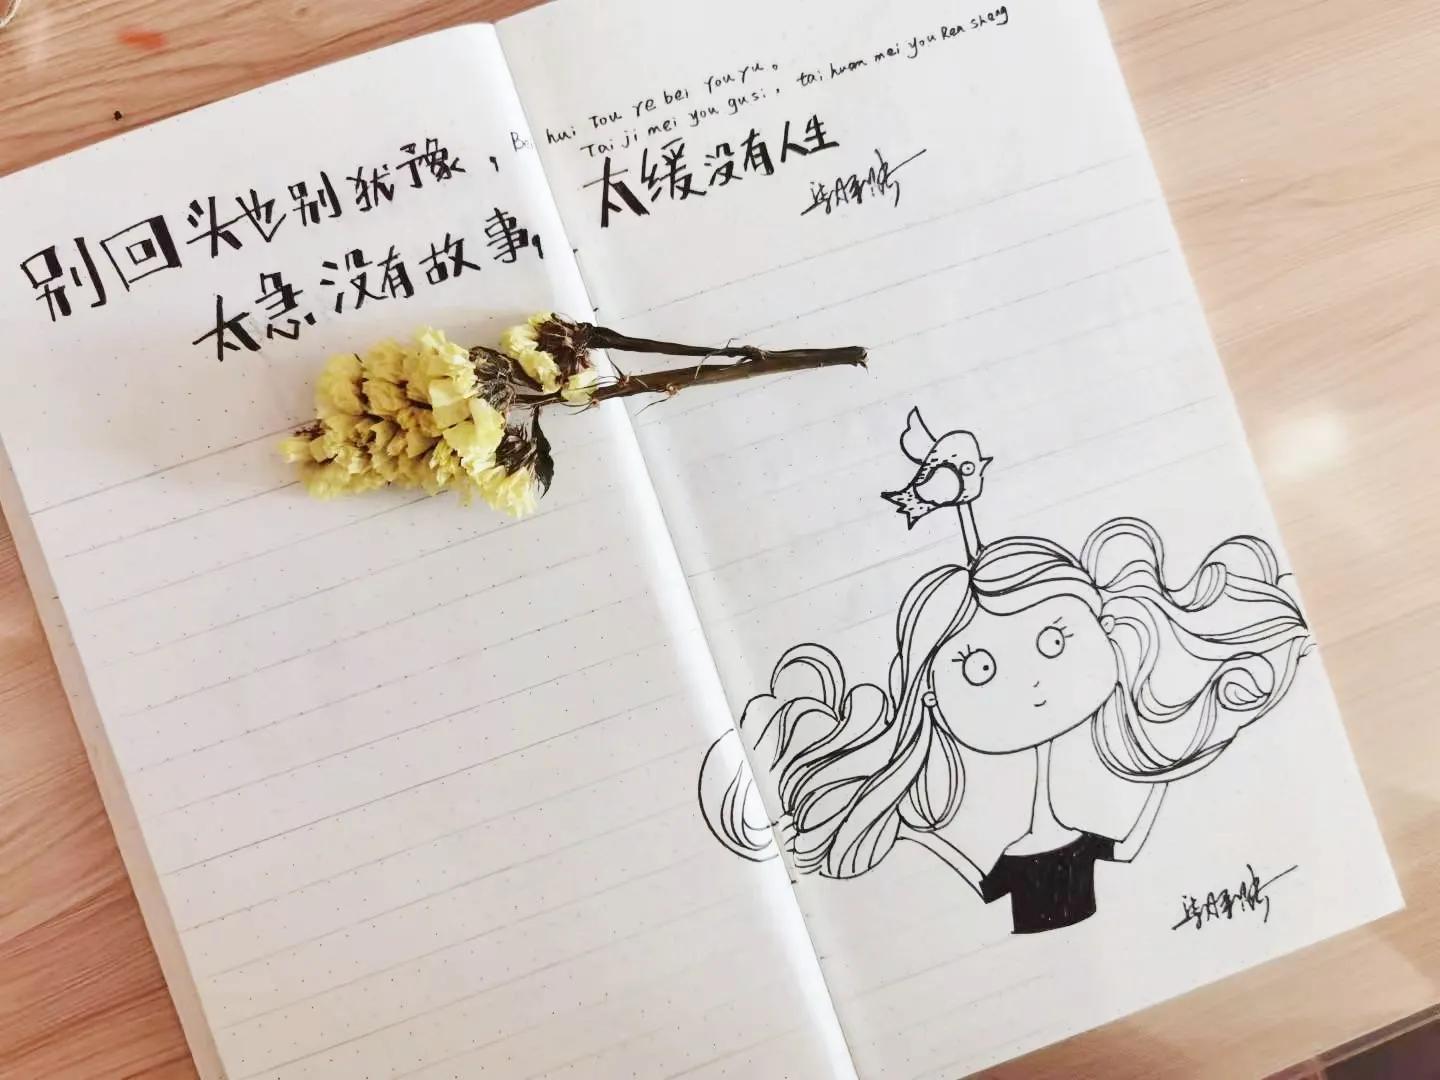 Bei hui Tou Ye bei You Yu。
Tai ji mei you gusi, tai huan mei you Ren sheng
别回头也别犹豫，
太急没有故事，太缓没有人生